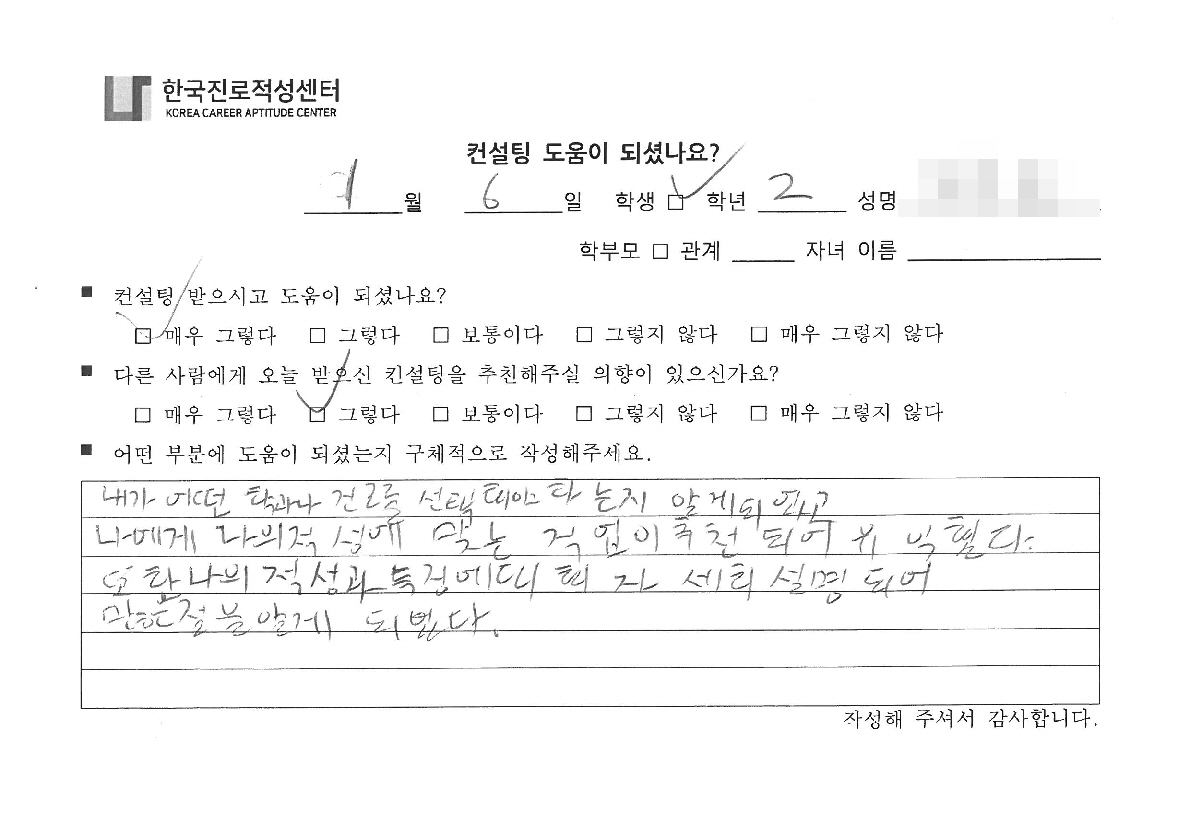 한국진로적성센터
KOREA CAREER APTITUDE CENTER
컨설팅 도움이 되셨나요?
7 월 6 일 학생 □ 학년 2 성명
학부모 □ 관계 자녀 이름
■ 컨설팅 받으시고 도움이 되셨나요?
□ 매우 그렇다 □ 그렇다 □ 보통이다 □ 그렇지 않다 □ 매우 그렇지 않다
■ 다른 사람에게 오늘 받으신 컨설팅을 추천해주실 의향이 있으신가요?
□ 매우 그렇다 □ 그렇다 □ 보통이다 □ 그렇지 않다 □ 매우 그렇지 않다
■ 어떤 부분에 도움이 되셨는지 구체적으로 작성해주세요.
내가 어떤 학과나 진로를 선택해야 하는지 알게되었고
나에게 나의적성에 맞는 직업이 추천 되어 유익했다.
또한 나의 적성과 특징에대해 자세히 설명되어
많은점을알게 되었다.
작성해 주셔서 감사합니다.